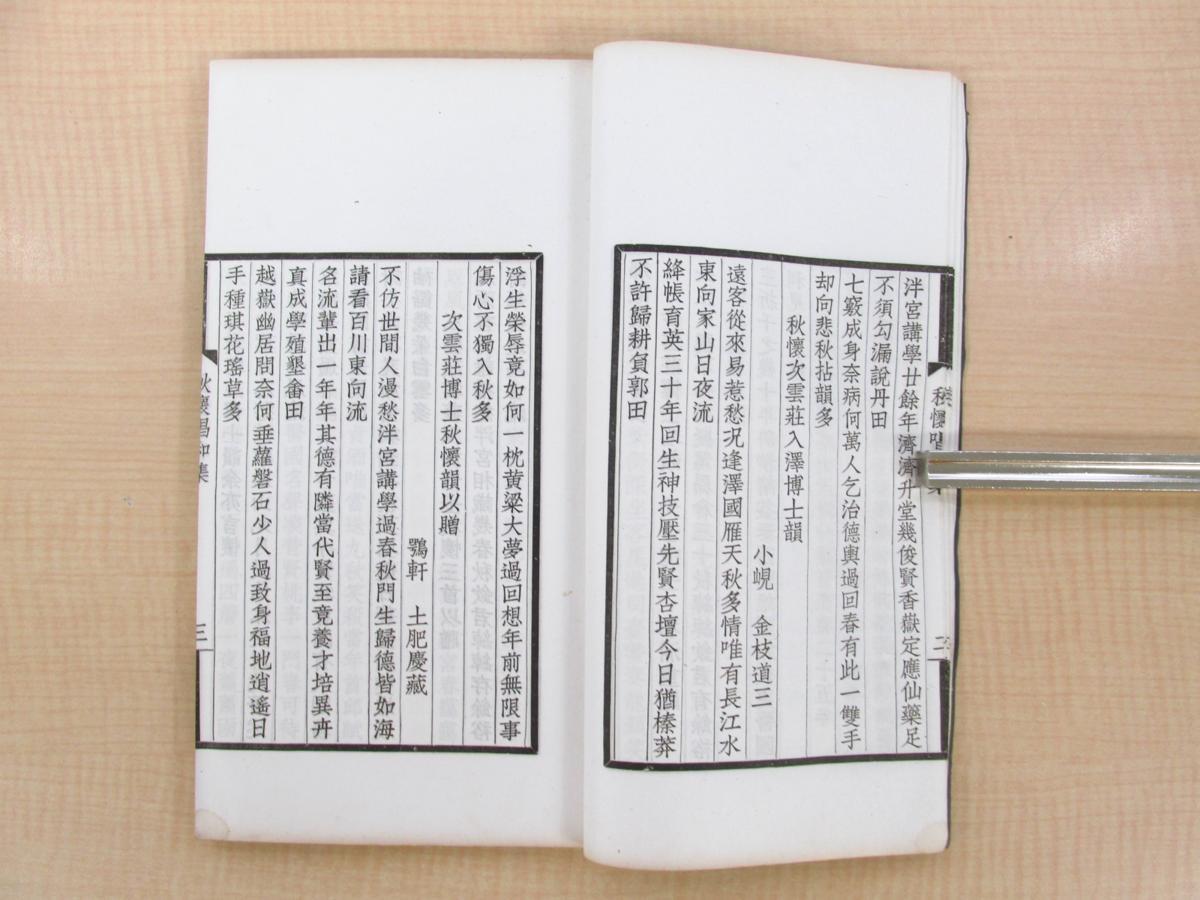 泮宮講學廿餘年濟濟升堂幾俊賢香嶽定應仙藥足
不須勾漏說丹田
七竅成身奈病何萬人乞治德輿過回春有此一雙手
却向悲秋拈韻多
秋懷次雲莊入澤博士韻
小峴 金枝道三
遠客從來易惹愁況逢澤國雁天秋多情唯有長江水
東向家山日夜流
絳帳育英三十年回生神技壓先賢杏壇今日猶榛莽
不許歸耕負郭田
浮生榮辱竟如何一枕黃粱大夢過回想年前無限事
傷心不獨入秋多
次雲莊博士秋懷韻以贈
鶚軒 土肥慶藏
不仿世間人漫愁泮宮講學過春秋門生歸德皆如海
請看百川東向流
名流輩出一年年其德有隣當代賢至竟養才培異卉
真成學殖墾畬田
越嶽幽居問奈何垂蘿磐石少人過致身福地逍遙日
手種琪花瑤草多
秋懷唱和集
三